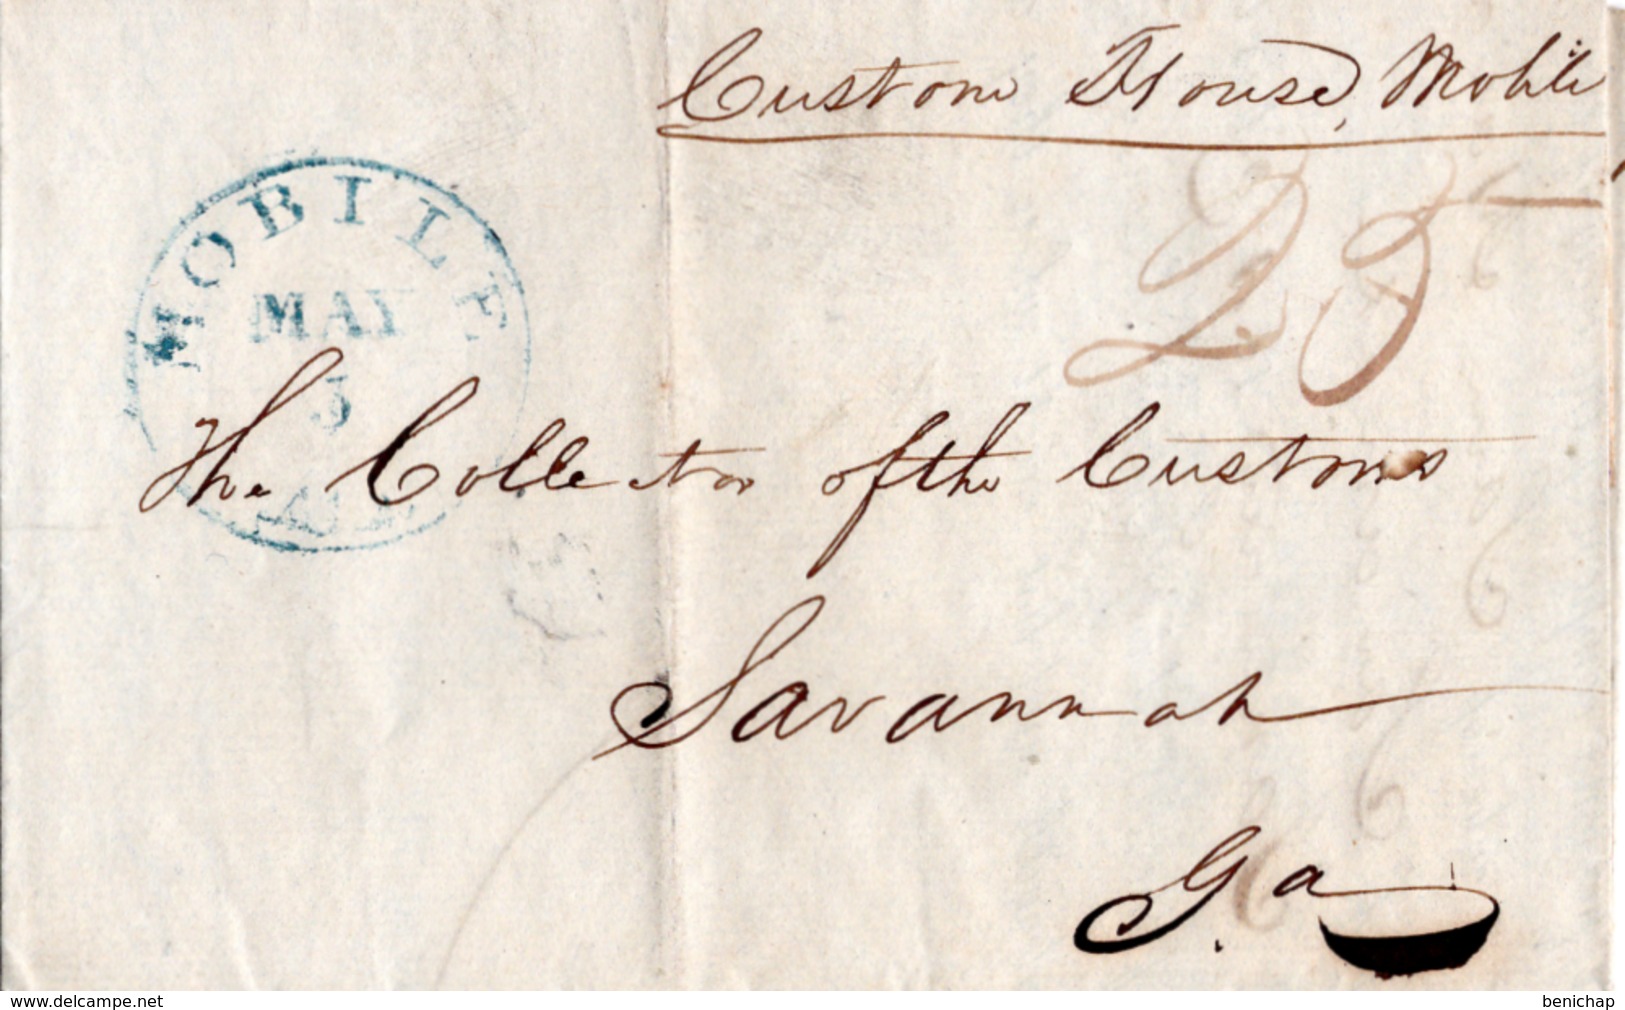 Custom House, Mobile
MOBILE
MAY
3
25
The Collector of the Customs
Savannah
Ga
www.delcampe.net
benichap